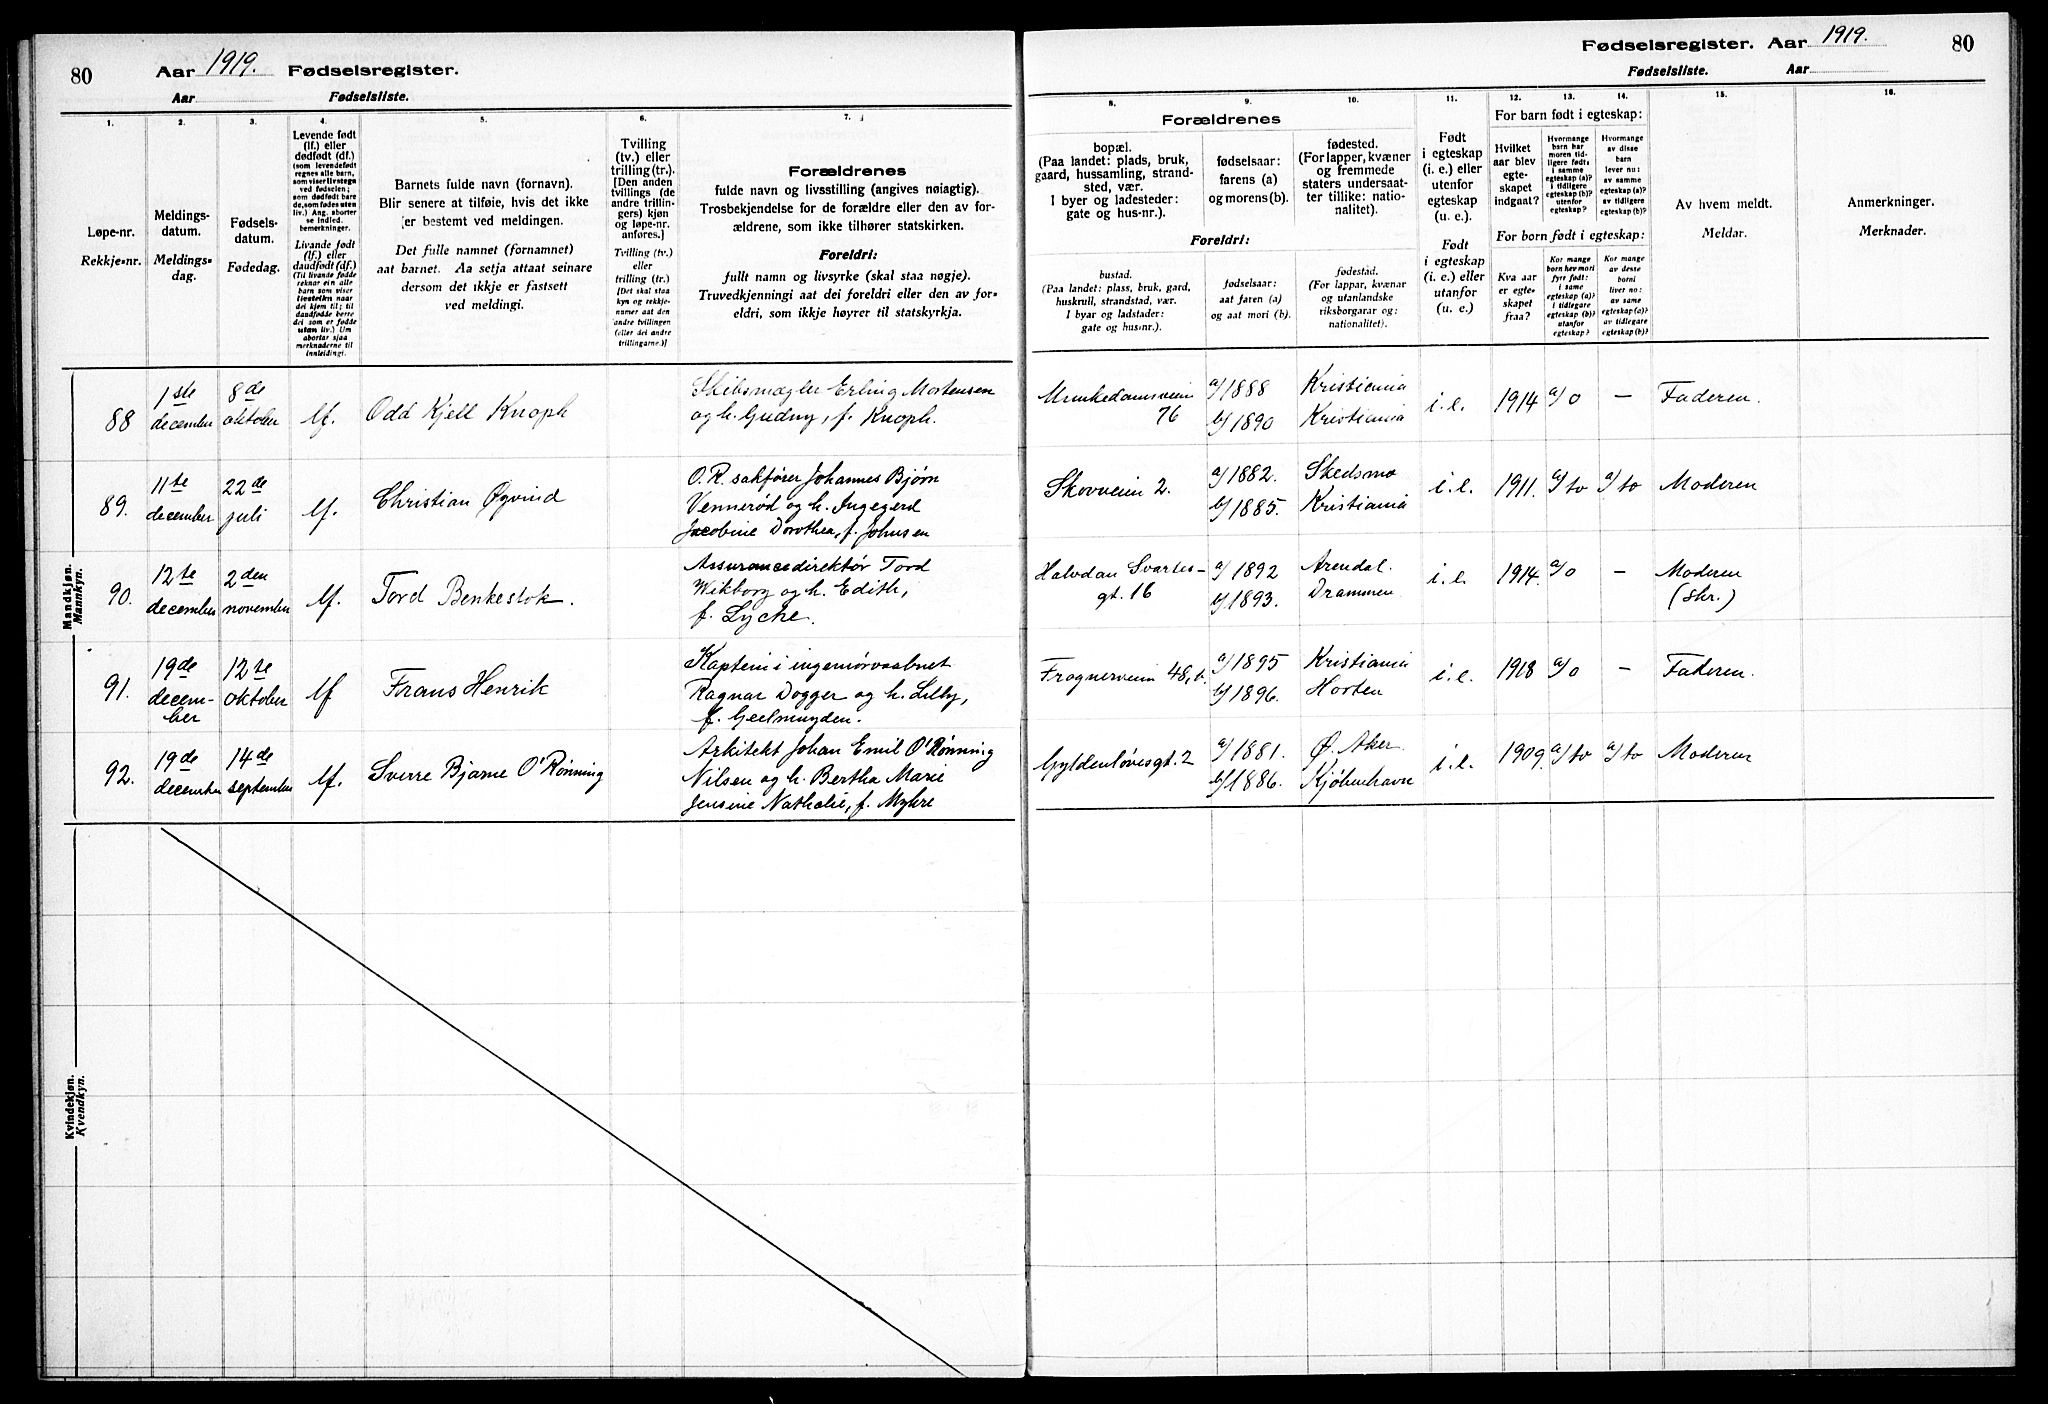 80 Aar 1919. Fødselsregister.
Aar Fødselsliste.
Fødselsregister. Aar 1919. 80
Fødselsliste. Aar
1.
2.
3.
4.
5.
6.
7.
Løpe-nr.
Rekkje-nr.
Meldings-
datum.
Meldings-
dag.
Fødsels-
datum.
Fødedag.
Levende født
(lf.) eller
dødfødt (df.)
(som levendefødt
regnes alle barn,
som viser livstegn
ved fødselen;
som dødfødt bare
de, som fødes uten
liv.) Ang. aborter
se indled.
bemerkninger.
Livande født
(lf.) eller
daudfødt (df.)
(Til livande fødde
reknar ein alle
born som viser
livsteikn naar
dei kjem til; til
daudfødde berre
dei som er fødde
utan liv.) Um
abortar sjaa
merknaderne til
innleidingi.
Barnets fulde navn (fornavn).
Blir senere at tilføie, hvis det ikke
er bestemt ved meldingen.
Det fulle namnet (fornamnet)
aat barnet. Aa setja attaat seinare
dersom det ikkje er fastsett
ved meldingi.
Tvilling
(tv.) eller
trilling (tr.).
[Den anden
tvillings (de
andre trillin-
gers) kjøn
og løpe-nr.
anføres.]
Tvilling (tv.)
eller
trilling (tr.)
[Det skal staa
kyn og rekkje-
numer aat den
andre tvillingen
(eller dei andre
trillingarne.)]
Forældrenes
fulde navn og livsstilling (angives nøiagtig).
Trosbekjendelse for de forældre eller den av for-
ældrene, som ikke tilhører statskirken.
Foreldri:
fullt namn og livsyrke (skal staa nøgje).
Truvedkjenningi aat dei foreldri eller den av for-
eldri, som ikkje høyrer til statskyrkja.
8.
9.
10.
11.
12.
13.
14.
15.
16.
Forældrenes
bopæl.
(Paa landet: plads, bruk,
gaard, hussamling, strand-
sted, vær.
I byer og ladesteder:
gate og hus-nr.).
Foreldri:
bustad.
(Paa landet: plass, bruk, gard,
huskrull, strandstad, vær.
I byar og ladstader:
gate og hus-nr.).
fødselsaar:
farens (a)
og morens (b).
fødselsaar:
aat faren (a)
og aat mori (b).
fødested.
(For lapper, kvæner
og fremmede
staters undersaat-
ter tillike: natio-
nalitet).
fødestad.
(For lappar, kvænar
og utanlandske
riksborgarar og:
nationalitet).
Født
i egteskap
(i. e.) eller
utenfor
egteskap
(u. e.).
Født
i egteskap
(i. e.) eller
utanfor
(u. e.)
For barn født i egteskap:
Hvilket
aar blev
egte-
skapet
indgaat?
Hvormange
barn har
moren tid-
ligere født:
i samme
egteskap (a)?
i tidligere
egteskap (b)?
utenfor
egteskap?
Hvormange
av disse
barn
lever nu:
av samme
egteskap (a)?
av tidligere
egteskap (b)?
For born født i egteskap:
Kva aar
er egte-
skapet
fraa?
Kor mange
born hev mori
fyrr født:
i same
egteskap (a)?
i tidlegare
egteskap (b)?
utanfor
egteskap?
Kor mange
av desse
borni
liver no:
av same
egteskap (a)?
av tidlegare
egteskap (b)?
Av hvem meldt.
Meldar.
Anmerkninger.
Merknader.
Mandkjøn.
Mannkyn.
88 1ste december 8de oktober lf. Odd Kjell Knoph Skibsmægler Erling Mortensen
og h. Gudny, f. Knoph.
Munkedamsveien 76 a/1888 Kristiania i. e. 1914 a/0 – Faderen.
b/1890 Kristiania
89. 11te december 22de juli lf. Christian Øyvind O.R. sakfører Johannes Bjørn
Vennerød og h. Ingegerd
Jacobine Dorothea, f. Johnsen
Skovveien 2. a/1882. Skedsmo i. e. 1911. a/to a/to Moderen
b/1885. Kristiania
90. 12te december 2den november lf. Tord Benkestok. Assurancedirektør Tord
Wikborg og h. Edith,
f. Lyche.
Halvdan Svartes-
gt. 16 a/1892 Arendal. i. e. 1914. a/0 – Moderen
(skr.)
b/1893. Drammen
91. 19de decem-
ber 12te oktober lf Frans Henrik Kaptein i ingeniørvaabnet
Ragnar Dogger og h. Lilly,
f. Geelmuyden.
Frognerveien 48, a/1895 Kristiania i. e. 1918 a/0 – Faderen.
b/1896. Horten
92. 19de december 14de september lf. Sverre Bjarne O'Rønning Arkitekt Johan Emil O'Rønning
Nilsen og h. Bertha Marie
Jensine Nathalie, f. Myhre
Gyldenløvesgt. 2 a/1881. Ø. Aker. i. e. 1909. a/to a/to Moderen
b/1886. Kjøbenhavn
Kvindekjøn.
Kvendkyn.